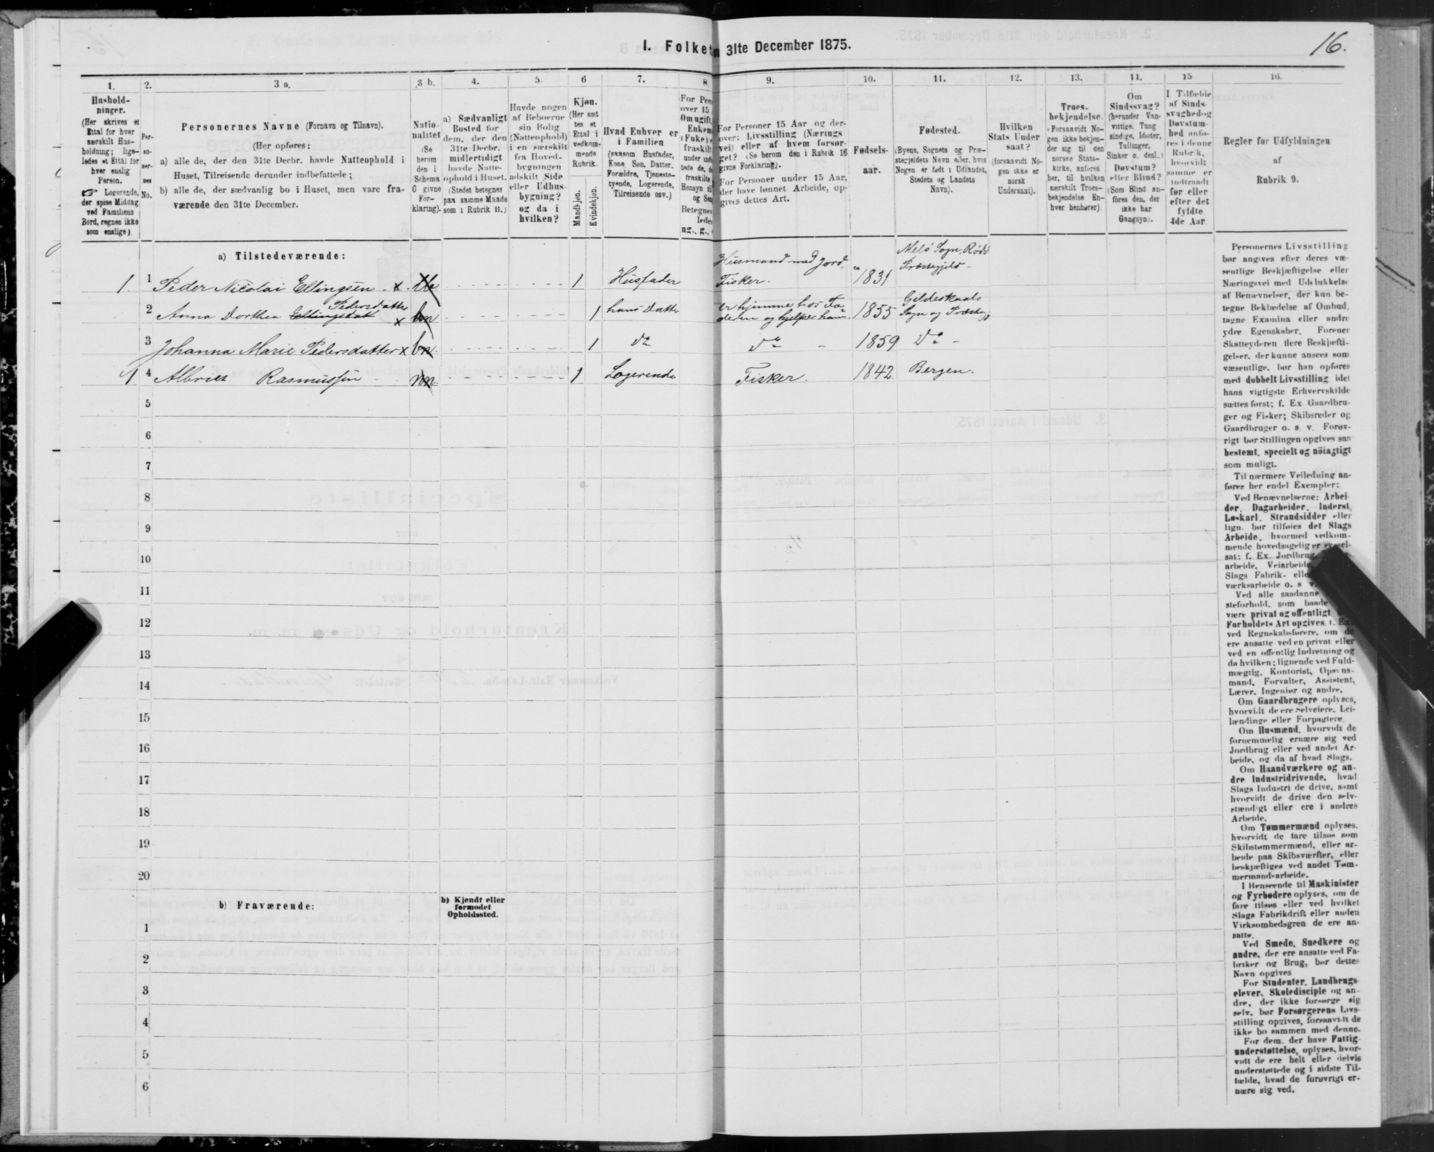 I. Folket
31te December 1875.
16.
1.
2.
3 a.
3 b.
4.
5.
6
7.
8.
9.
10.
11.
12.
13.
14.
15
16.
Hushold-
ninger.
(Her skrives et
Ettal for hver
særskilt Hus-
holdning; lige-
ledes et Ettal for
hver enslig
Person.
Logerende,
der spise Middag
ved Familiens
Bord, regnes ikke
som enslige).
Per-
so-
ner-
nes
No.
Personernes Navne (Fornavn og Tilnavn).
(Her opføres:
a) alle de, der den 31te Decbr. havde Natteophold i
Huset, Tilreisende derunder indbefattede;
b) alle de, der sædvanlig bo i Huset, men vare fra-
værende den 31te December.
Natio-
nalitet
(Se
herom
den i
Schema
O givne
For-
klaring).
a) Sædvanligt
Bosted for
dem, der den
31te Decbr.
midlertidigt
havde Natte-
ophold i Huset.
(Stedet betegnes
paa samme Maade
som i Rubrik 11.)
Havde nogen
af Beboerne
sin Bolig
(Natteophold)
i en særskilt
fra Hoved-
bygningen
adskilt Side
eller Udhus-
bygning?
og da i
hvilken?
Kjøn.
(Her sæt
tes et
Ettal i
vedkom-
mende
Rubrik.
Mandkjøn.
Kvindekjøn.
Hvad Enhver er
i Familien
(saasom Husfader,
Kone, Søn, Datter,
Forældre, Tjeneste-
tyende, Logerende,
Tilreisende osv.)
For Pers
over 15
Om ugift,
Enkem
(Enke)
fraskilt
Betegnes
ledes
ug., g.,
For Personer 15 Aar og der-
over: Livsstilling (Nærings
vei) eller af hvem forsør-
get? (Se herom den i Rubrik 16
givne Forklaring).
For Personer under 15 Aar,
der have lønnet Arbeide, op-
gives dettes Art.
Fødsels-
aar.
Fødested.
(Byens, Sognets og Præ-
stegjeldets Navn eller, hvis
Nogen er født i Udlandet,
Stedets og Landets
Navn).
Hvilken
Stats Under
saat?
(forsaavidt No-
gen ikke er
norsk
Undersaat).
Troes-
bekjendelse.
(Forsaavidt No-
gen ikke bekjen-
der sig til den
norske Stats-
kirke, anføres
her, til hvilken
særskilt Troes-
bekjendelse En-
hver henhører).
Om
Sindssvag?
(herunder Van-
vittige, Tung
sindige, Idioter,
Tullinger,
Sinker o. desl.)
Døvstum?
eller Blind?
(Som Blind an-
føres den, der
ikke har
Gangsyn).
I Tilfælde
af Sinds-
svaghed og
Døvstum-
hed anfø-
res i denne
Rubrik,
hvorvidt
samme er
indtraadt
før eller
efter det
fyldte
4de Aar.
Regler for Udfyldningen
af
Rubrik 9.
a) Tilstedeværende:
1 1 Peder Nicolai Ellingsen x 1 Husfader Husmand med Jord, Fisker. 1831 Melø Sogn, Rødø Præstegjeld
2 Anna Dorthea Ellingsdatt Pedersdatter x 1 hans Datter er hjemme hos Fa- deren og hjelper ham 1855 Gildeskaals Sogn og Præsteg
3 Johanna Marie Pedersdatter x 1 do do - 1859 do -
1 4 Albriet Rasmussen 1 Logerende Fisker. 1842 Bergen.
5
6
7
8
9
10
11
12
13
14
15
16
17
18
19
20
b) Fraværende:
b) Kjendt eller
formodet
Opholdssted.
1
2
3
4
5
6
Personernes Livsstilling
bør angives efter deres væ-
sentlige Beskjæftigelse eller
Næringsvei med Udelukkelse
af Benævnelser, der kun be-
tegne Beklædelse af Ombud,
tagne Examina eller andre
ydre Egenskaber. Forener
Skatteyderen flere Beskjæfti-
gelser, der kunne ansees som
væsentlige, bør han opføres
med dobbelt Livsstilling, idet
hans vigtigste Erhvervskilde
sættes først; f. Ex Gaardbru-
ger og Fisker; Skibsreder og
Gaardbruger o. s. v. Forøv-
rigt bør Stillingen opgives saa
bestemt, specielt og nöiagtigt
som muligt.
Til nærmere Veiledning an-
føres her endel Exempler:
Ved Benævnelserne: Arbei-
der, Dagarbeider, Inderst,
Løskarl, Strandsidder eller
lign. bør tilføies det Slags
Arbeide, hvormed vedkom-
mende hovedsagelig er syssel-
sat; f. Ex. Jordbrug
arbeide, Veiarbeide
Slags Fabrik- elle
værksarbeide o. s v.
Ved alle saadanne
steforhold, som baade
være privat og offentligt
Forholdets Art opgives, f. Ex
ved Regnskabsførere, om de
ere ansatte ved en privat eller
ved en offentlig Indretning og
da hvilken; lignende ved Fuld-
mægtig, Kontorist, Opsyns-
mand, Forvalter, Assistent,
Lærer, Ingeniør og andre.
Om Gaardbrugere oplyses,
hvorvidt de ere Selveiere, Lei-
lændinge eller Forpagtere.
Om Husmænd, hvorvidt de
fornemmelig ernære sig ved
Jordbrug eller ved andet Ar-
beide, og da af hvad Slags.
Om Haandværkere og an-
dre Industridrivende, hvad
Slags Industri de drive, samt
hvorvidt de drive den selv-
stændigt eller ere i andres
Arbeide.
Om Tømmermænd oplyses,
hvorvidt de fare tilsøs som
Skibstømmermænd, eller ar-
beide paa Skibsværfter, eller
beskjæftiges ved andet Tøm-
mermandsarbeide.
I Henseende til Maskinister
og Fyrbødere oplyses, om de
fare tilsøs eller ved hvilket
Slags Fabrikdrift eller anden
Virksomhedsgren de ere an-
satte.
Ved Smede, Snedkere og
andre, der ere ansatte ved Fa-
briker og Brug, bør dettes
Navn opgives
For Studenter, Landbrugs-
elever, Skoledisciple og an-
dre, der ikke forsørge sig
selv, bør Forsørgerens Livs-
stilling opgives, forsaavidt de
ikke bo sammen med denne.
For dem, der have Fattig-
understøttelse, oplyses, hvor-
vidt de ere helt eller delvis
understøttede og i sidste Til-
fælde, hvad de forøvrigt er-
nære sig ved.